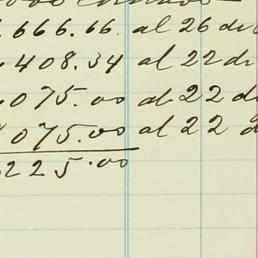 .666.66. al 26 de
408.34 al 22 de
075.00 al 22 de
075.00 al 22 d
225.00